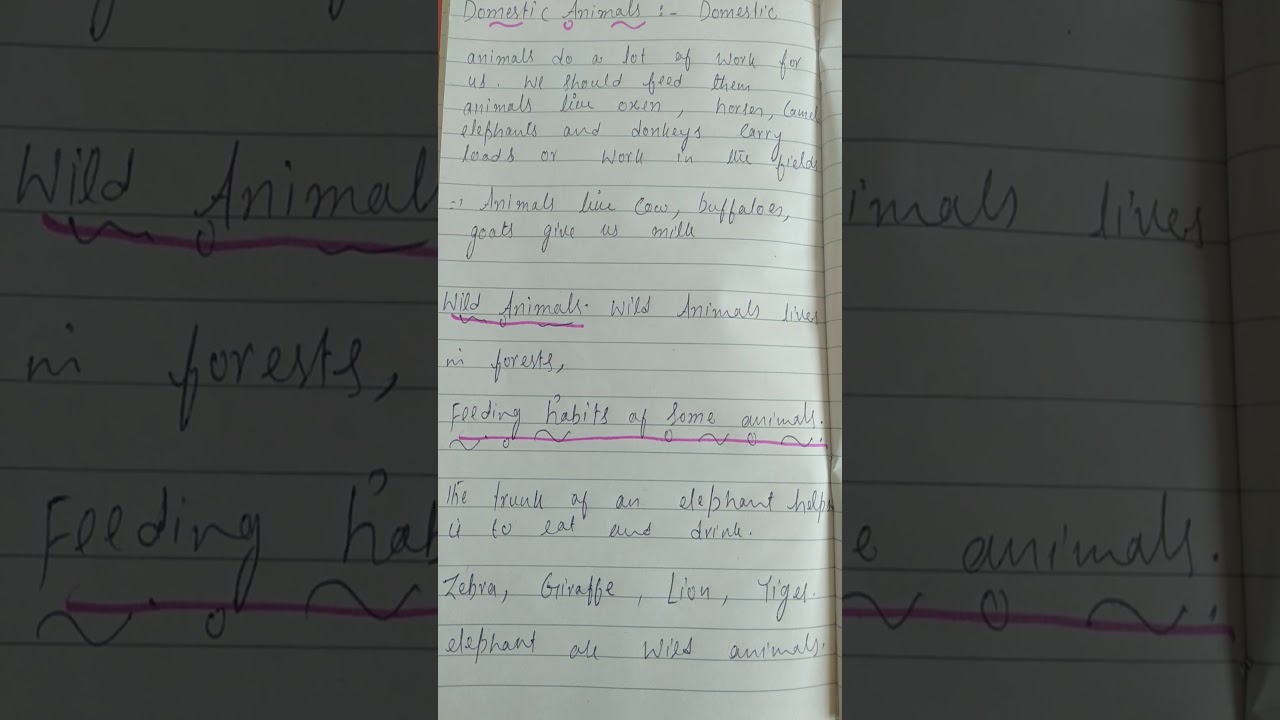 Domestic Animals :- Domestic
animals do a lot of work for
us. We should feed them
animals like oxen, horses, Camel
elephants and donkeys carry
loads or work in the fields
=> Animals like Cow, buffaloes,
goats give us milk
Wild Animals. Wild Animals lives
in forests,
Feeding habits of some animals.
The trunk of an elephant helps
it to eat and drink.
Zebra, Giraffe, Lion, Tiger.
elephant are Wild animals.